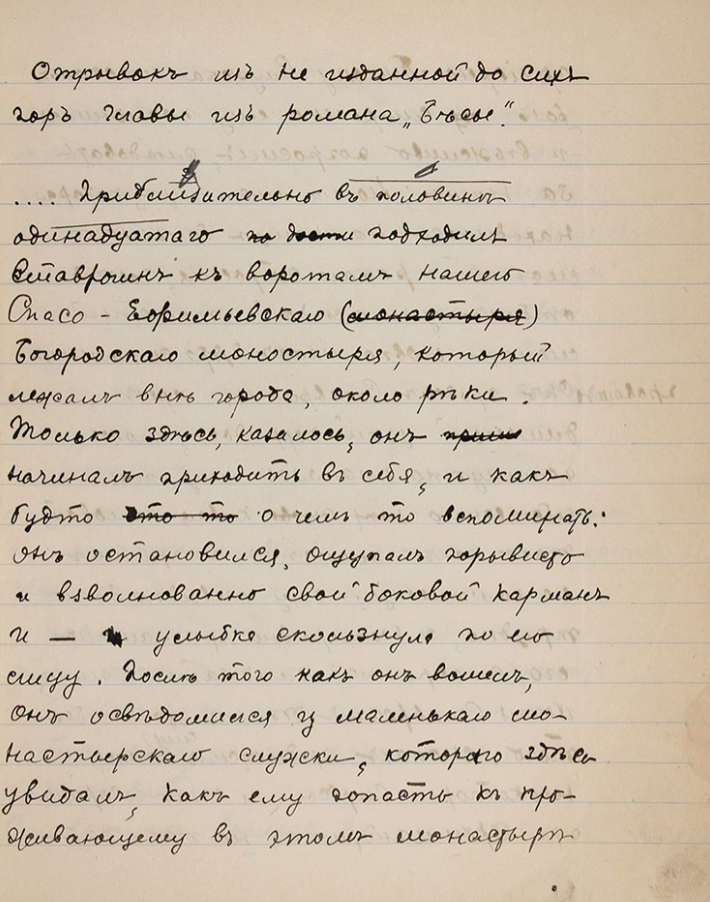 Отрывокъ изъ не изданной до сихъ
поръ главы изъ романа „Бѣсы“.
.... Приблизительно въ половинѣ
одинадцатаго по доски подходилъ
Ставрогинъ къ воротамъ нашего
Спасо - Ефимьевскаго (монастыря)
Богородскаго моностыря, который
лежалъ внѣ города, около рѣки.
Только здѣсь, казалось, онъ
начиналъ приходить въ себя, и какъ
будто это то о чемъ то вспоминать:
онъ остановился, ощупалъ порывисто
и взволнованно свой боковой карманъ
и — улыбка скользнула по его
лицу. Послѣ того какъ онъ вошелъ,
онъ освѣдомился у маленькаго мо-
настырскаго служки, котораго здѣсь
увидалъ, какъ ему попасть къ про-
живающему въ этомъ монастырѣ